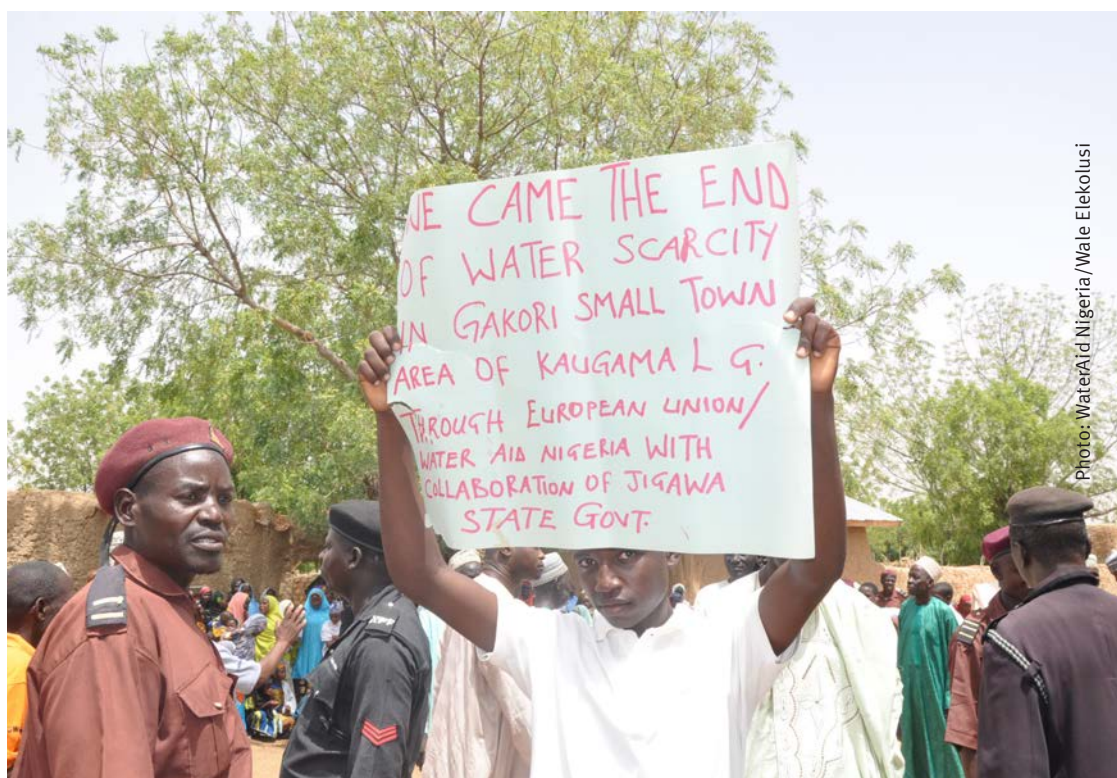 WE CAME THE END
OF WATER SCARCITY
IN GAKORI SMALL TOWN
AREA OF KAUGAMA L G.
THROUGH EUROPEAN UNION/
WATER AID NIGERIA WITH
COLLABORATION OF JIGAWA
STATE GOVT.
Photo: WaterAid Nigeria/Wale Elekolusi